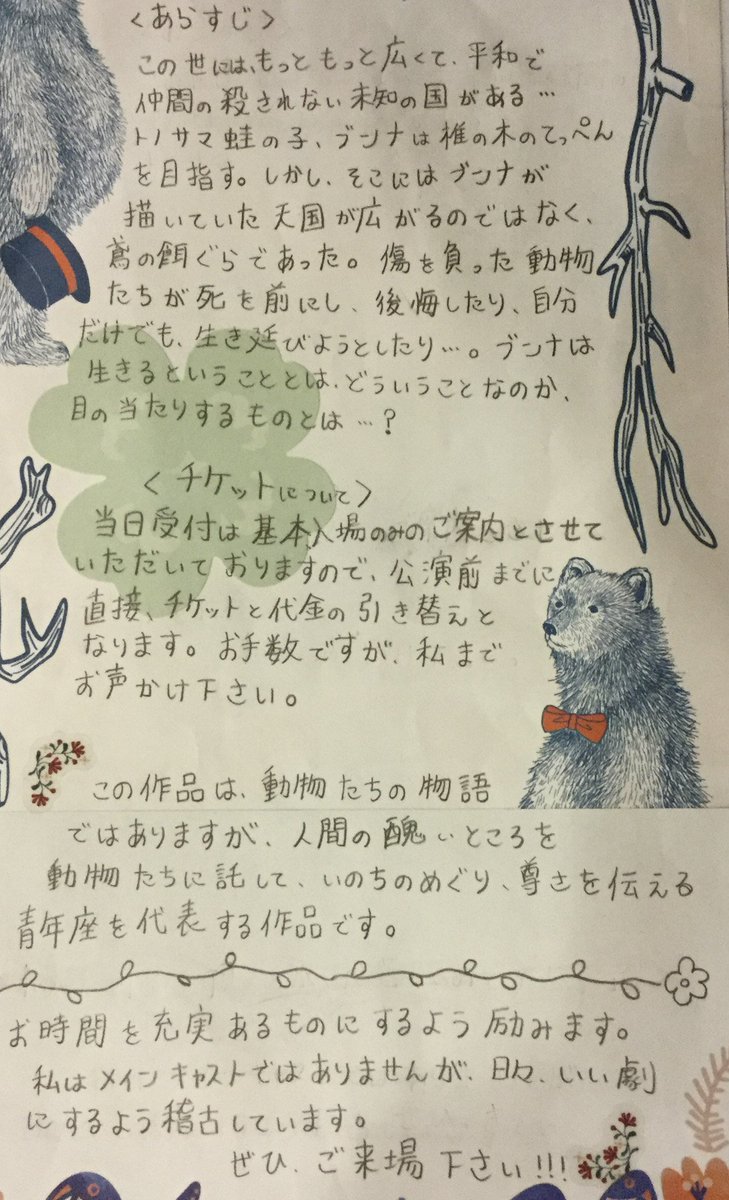 <あらすじ>
この世には、もっともっと広くて、平和で
仲間の殺されない未知の国がある…
トノサマ蛙の子、ブンナは椎の木のてっぺん
を目指す。しかし、そこにはブンナが
描いていた天国が広がるのではなく、
鳶の餌ぐらであった。傷を負った動物
たちが死を前にし、後悔したり、自分
だけでも、生き延びようとしたり…。ブンナは
生きるということとは、どういうことなのか、
目の当たりするものとは…?
<チケットについて>
当日受付は基本、入場のみのご案内とさせて
いただいておりますので、公演前までに
直接、チケットと代金の引き替えと
なります。お手数ですが、私まで
お声かけ下さい。
この作品は、動物たちの物語
ではありますが、人間の醜いところを
動物たちに託して、いのちのめぐり、尊さを伝える
青年座を代表する作品です。
お時間を充実あるものにするよう励みます。
私はメインキャストではありませんが、日々、いい劇
にするよう稽古しています。
ぜひ、ご来場下さい!!!